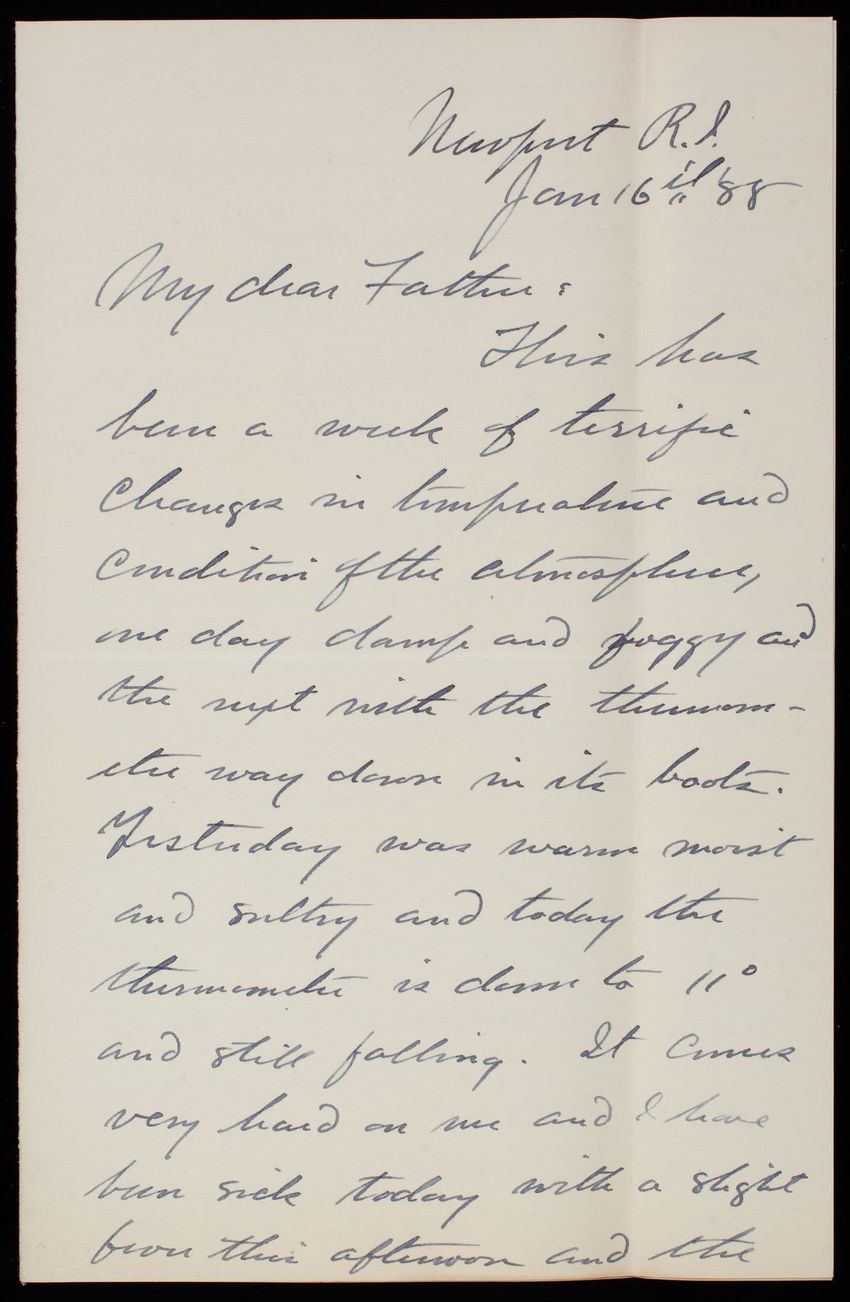 Newport R.I.
Jan 16th '88
My dear Father:
This has
been a week of terrific
changes in temperature and
condition of the atmosphere,
one day damp and foggy and
the next with the thermom-
eter way down in its boots.
Yesterday was warm moist
and sultry and today the
thermometer is down to 11°
and still falling. It comes
very hard on me and I have
been sick today with a slight
fever this afternoon and the